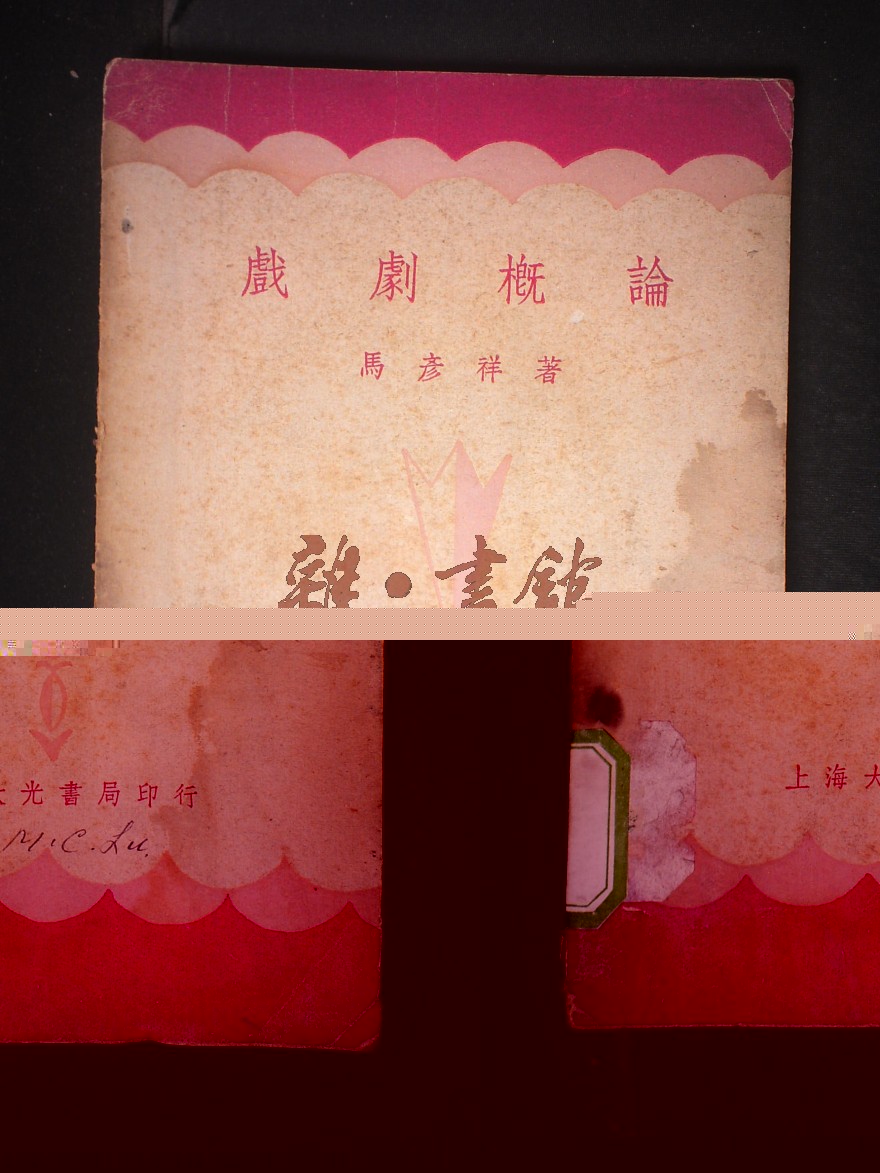 戲劇概論
馬彥祥著
雜·書館
光書局印行
上海大
M.C. Lu.